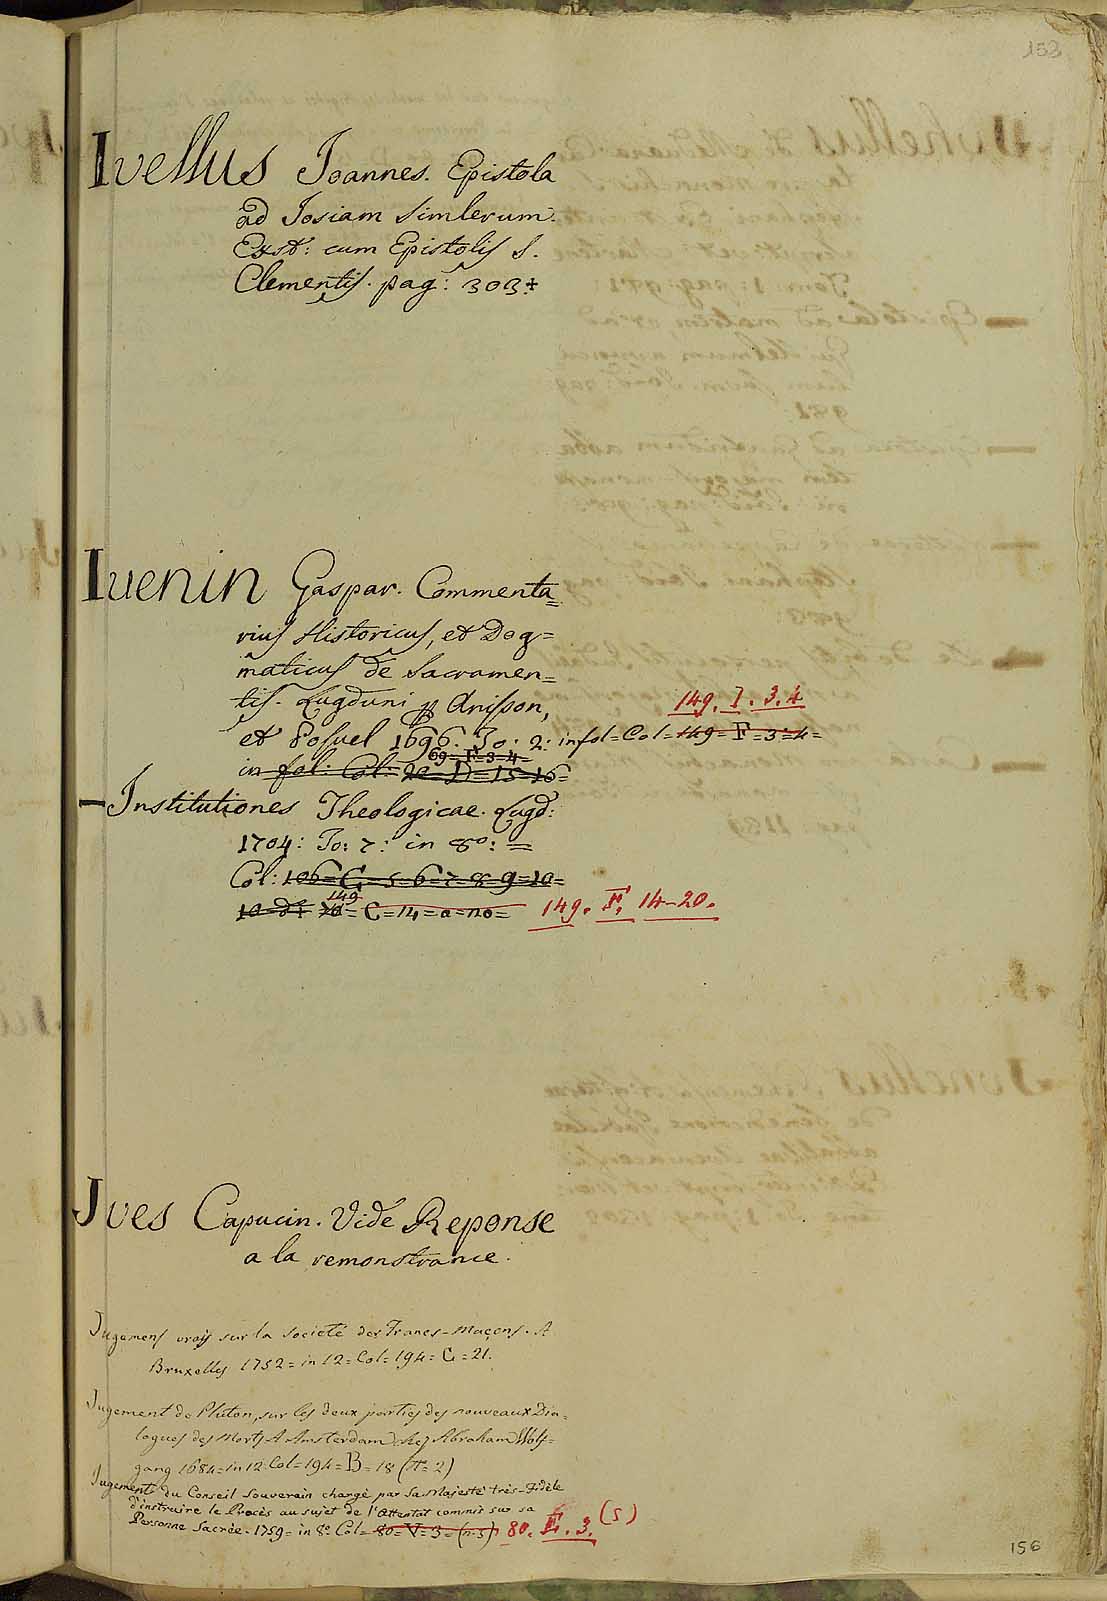 153
Ivellus Joannes. Epistola
ad Josiam Simlerum.
Exst: cum Epistolis S.
Clementis. pag: 303.
Iuenin Gaspar. Commenta=
rius Historicus, et Dog=
maticus de Sacramen=
tis. Lugduni Anisson,
149. I. 3. 4
et Posuel 1696. To: 2: in fol= Col= 149= F= 3=4=
69=F=3=4=
in fol: Col: 20=D=15=16=
— Institutiones Theologicae. Lugd:
1704: To: 7: in 8o: =
Col: 106=C=5=6=7=8=9=10=
149
C=14=a=20= 149. F. 14-20.
Jves Capucin. Vide Reponse
a la remonstrance.
Jugemens vrays sur la Societé des Francs-Maçons. A
Bruxelles 1752= in 12= Col= 194= C=21.
Jugement de Pluton, sur les deux parties des nouveaux Dia=
logues des Morts A Amsterdam chez Abraham Wolf=
gang 1684= in 12 Col= 194= B= 18 (A=2)
Jugement du Conseil Souverain chargé par Sa Majesté très-Fidèle
d'instruire le Procès au sujet de l'Attentat commis sur sa
Personne Sacrée. 1759= in 8o Col= 80= V= 3= (n.5) 80. E. 3. (5)
156